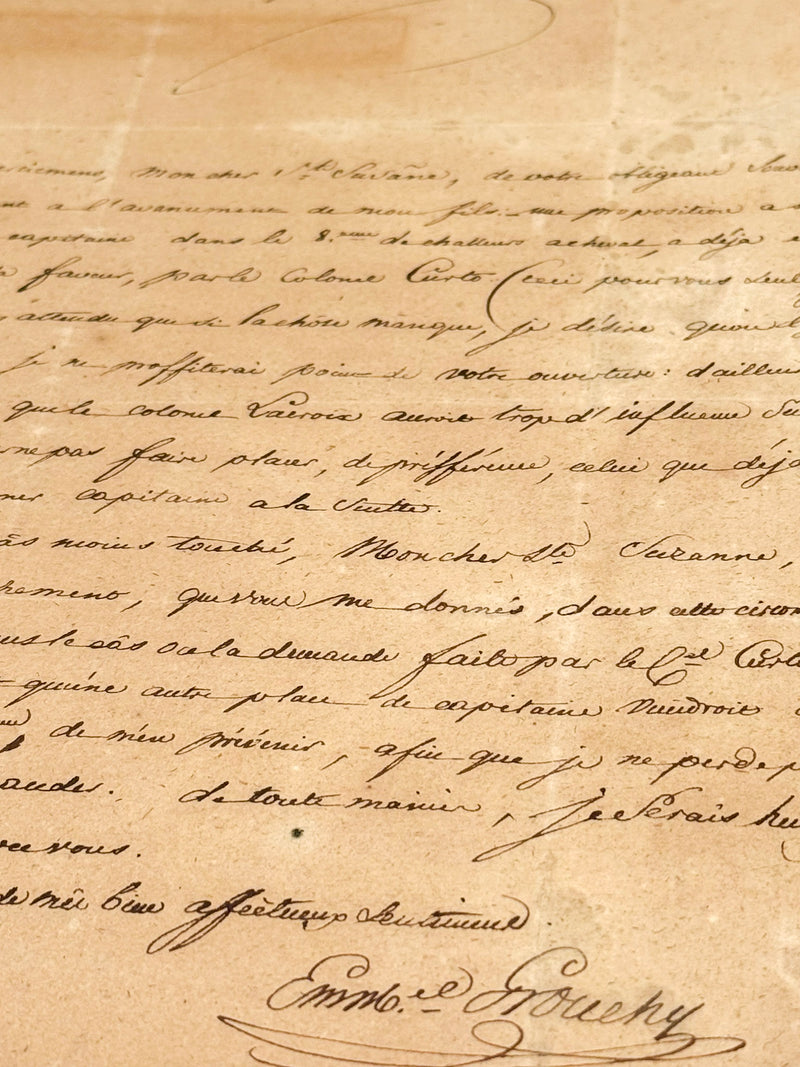 mon cher St. Suzañe, de votre obligeant
a l'avancement de mon fils. une proposition a
capitaine dans le 8.eme de chasseurs acheval, a déja
faveur, par le Colonel Curto (ceci pour vous seul
attendu que si la chose manque, je désire qu'on
je ne proffiterai point de votre ouverture: d'ailleurs
que le colonel Lacroix auroit trop d'influence
ne pas faire placer, de préfférence, celui que déja
capitaine a la suitte.
moins touché, Mon cher Ste. Suzanne,
que vous me donnés, dans cette
le câs ou la demande faite par le Cel Curto
qu'une autre place de capitaine viendroit
de m'en prévenir, afin que je ne perde
de toute maniere, je serais
vous.
de mes bien affectueux sentimens.
Emm.el Grouchy